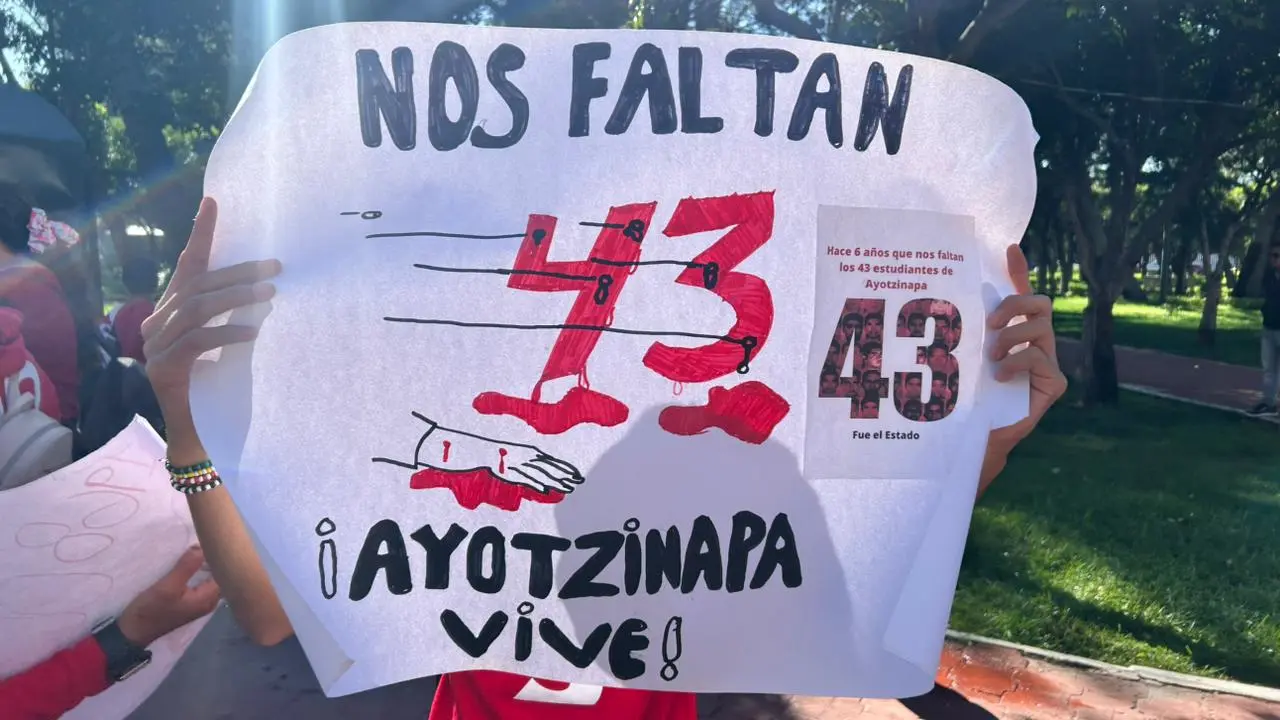 NOS FALTAN
43
Hace 6 años que nos faltan
los 43 estudiantes de
Ayotzinapa
43
Fue el Estado
¡AYOTZINAPA
VIVE!